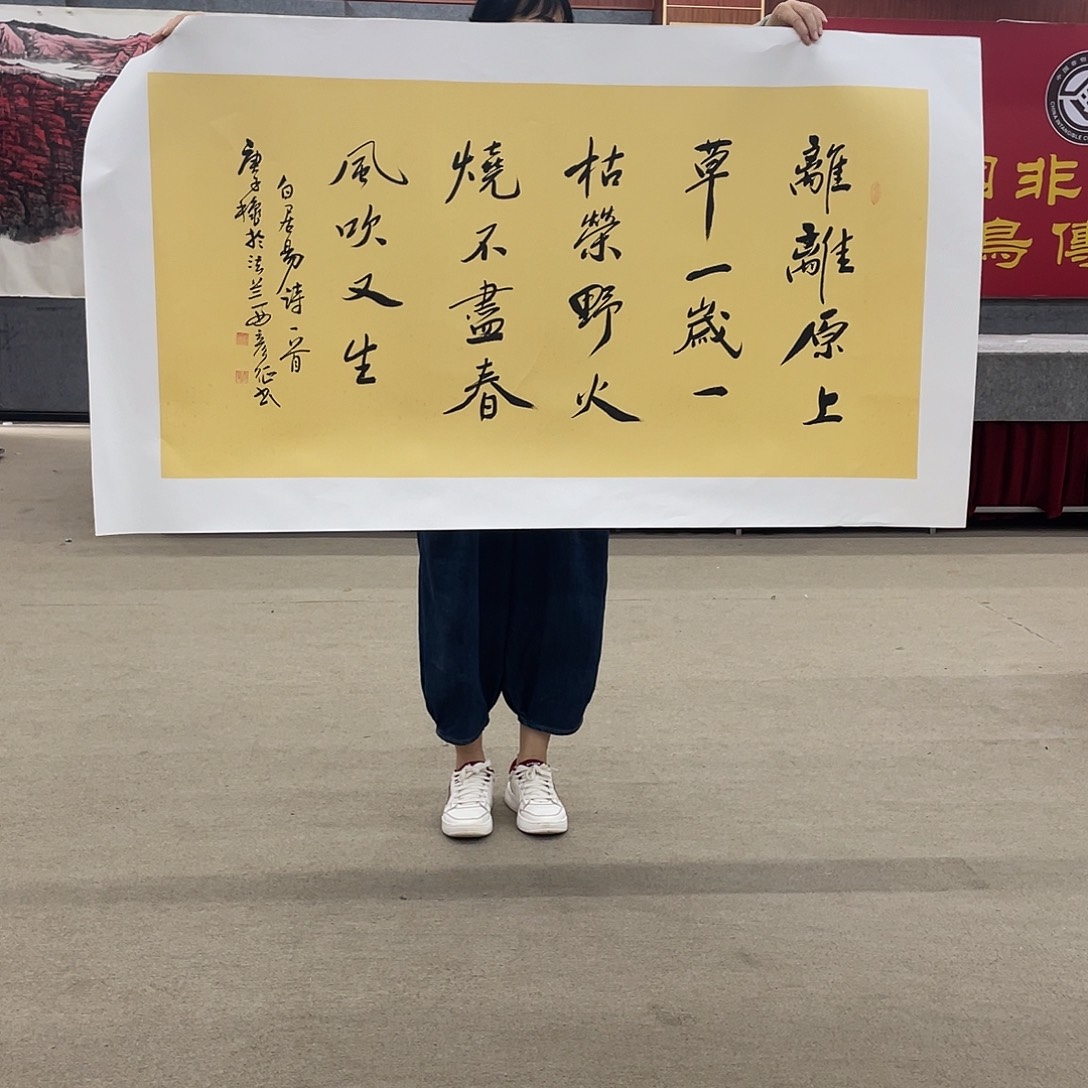 離離原上
草一歲一
枯榮野火
燒不盡春
風吹又生
白居易詩一首
庚子穐於法兰西彦征书
非
鳥傳
CHINA INTANGIBLE